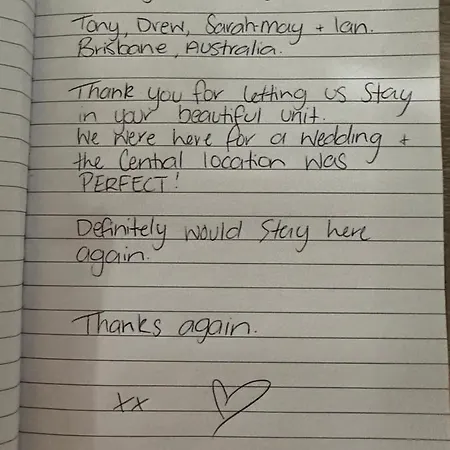 Tony, Drew, Sarah-May + Ian.
Brisbane, Australia.
Thank you for letting us stay
in your beautiful unit.
We were here for a wedding +
the Central location was
PERFECT!
Definitely would stay here
again.
Thanks again.
xx